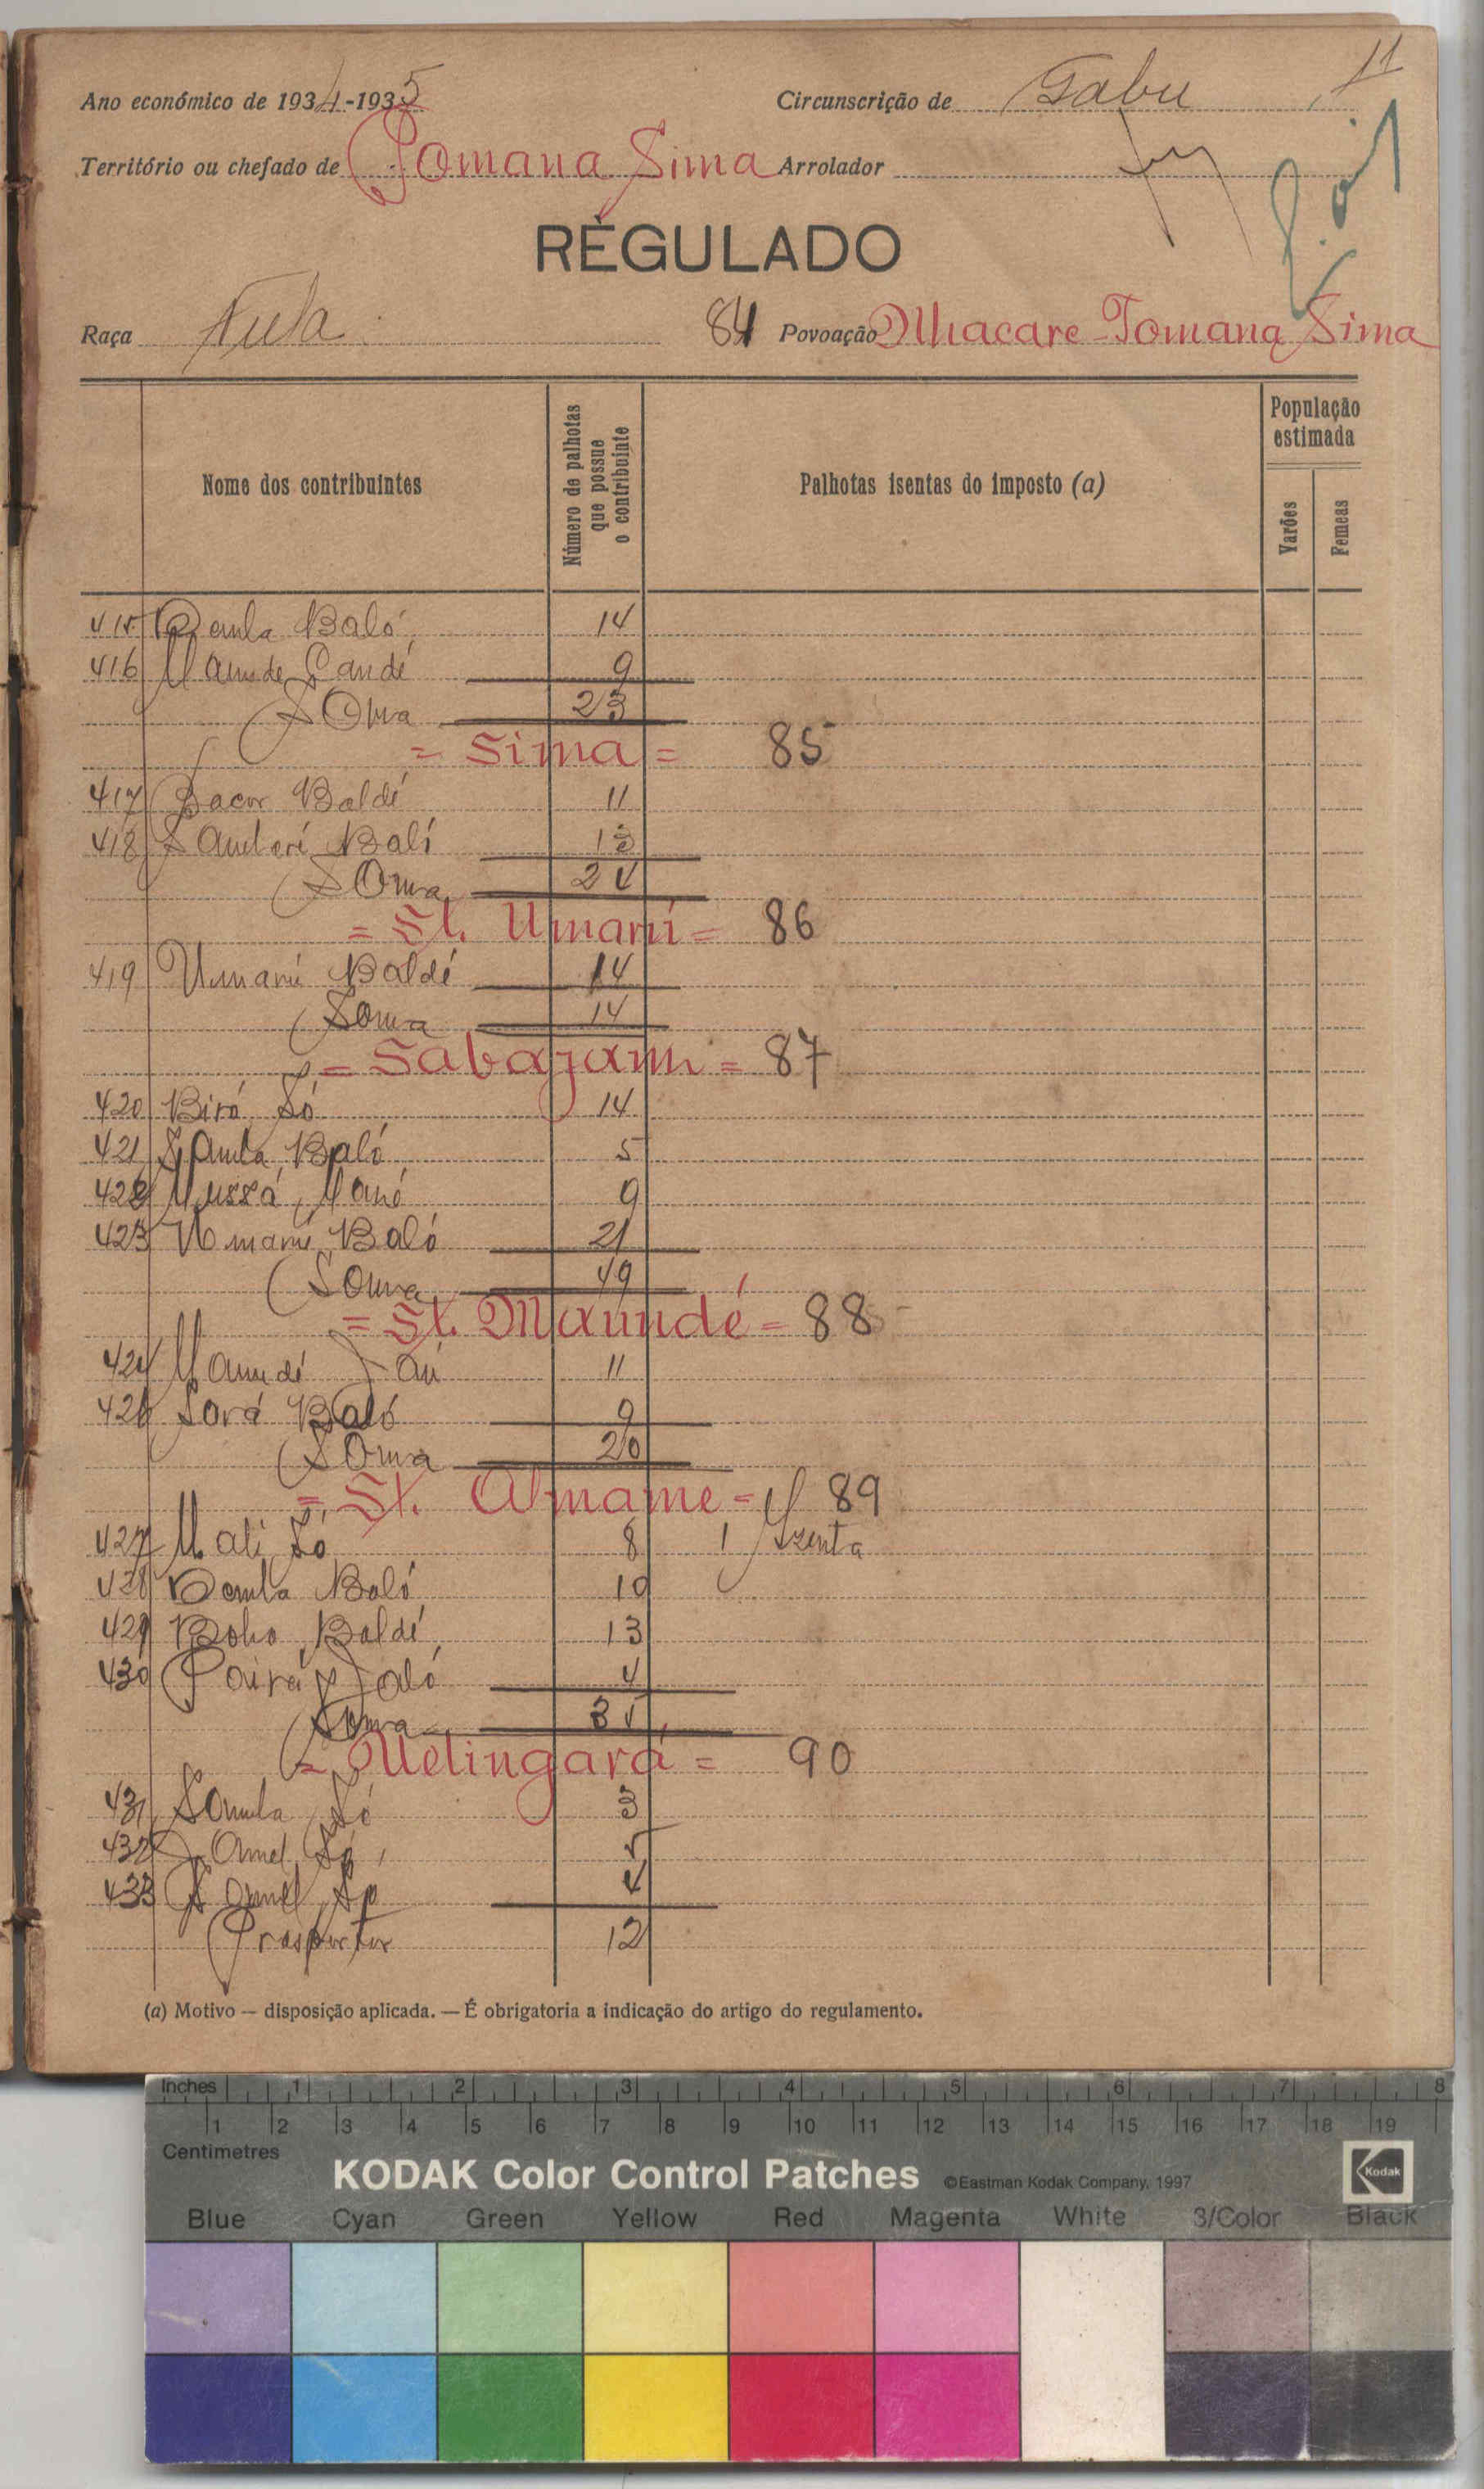 11
Ano económico de 1934-1935 Circunscrição de Gabu
Território ou chefado de Tomana Sima Arrolador
REGULADO
Raça Fula 84 Povoação Mhacare-Tomana Sima
Nome dos contribuintes
Número de palhotas que possue o contribuinte
Palhotas isentas do imposto (a)
População estimada
Varões
Femeas
415 Demba Baló 14
416 Mamude Candé 9
Soma 23
= Sima = 85
417 Bacar Baldé 11
418 Baló 13
Soma 24
= St. Umarú = 86
419 Umarú Baldé 14
Soma 14
= Sabajam = 87
420 Biró Só 14
421 Samba Baló 5
422 Mussá Mané 9
423 Umarú Baló 21
Soma 49
= St. Maundé = 88
424 Mamudé Jau 11
426 Sará Baló 9
Soma 20
= St. Almame = 89
427 Mali Só 8 1 Izenta
428 Demba Baló 10
429 Boho Baldé 13
430 Pairá Jaló 4
Soma 35
= Uelingará = 90
431 Samba Só 3
432 Só 5
433 Só 4
Trasportar 12
(a) Motivo — disposição aplicada. — É obrigatoria a indicação do artigo do regulamento.
Inches 1 2 3 4 5 6 7 8
1 2 3 4 5 6 7 8 9 10 11 12 13 14 15 16 17 18 19
Centimetres
KODAK Color Control Patches ©Eastman Kodak Company, 1997 Kodak
Blue Cyan Green Yellow Red Magenta White 3/Color Black